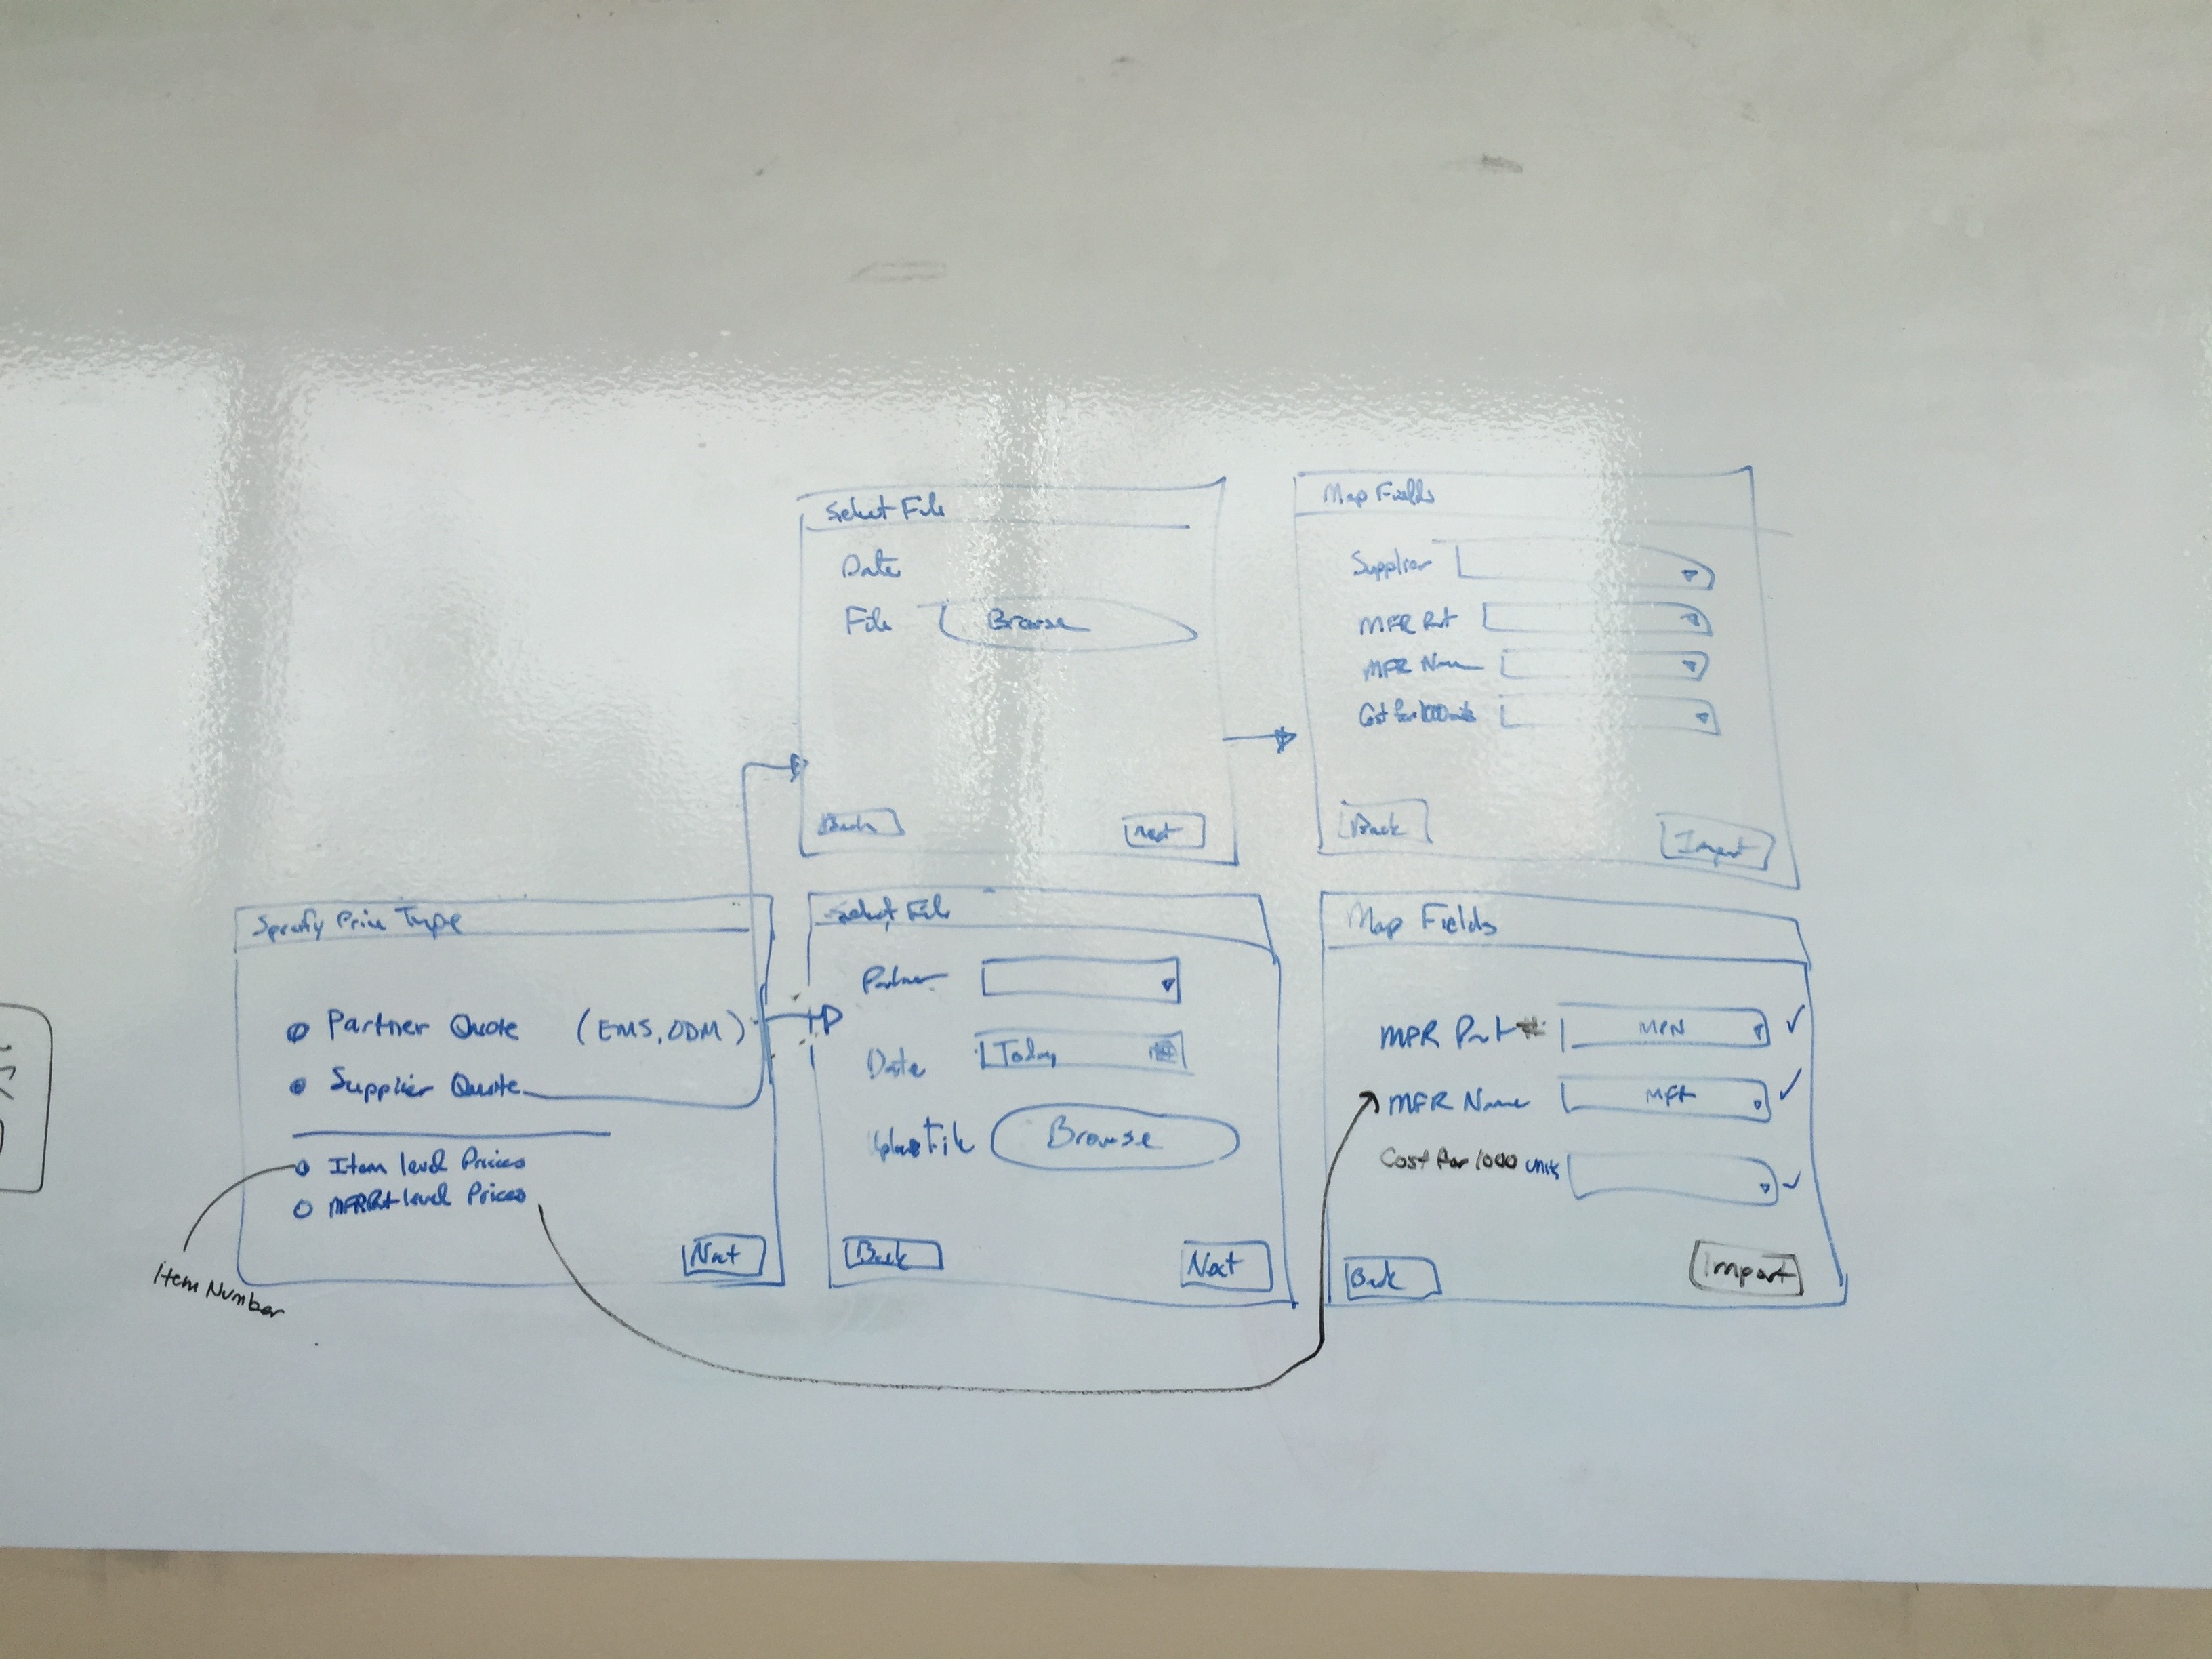 Select File
Date
File Browse
Back Next
Map Fields
Supplier
MFR Part
MFR Name
Cost for 1000 units
Back Import
Specify Price Type
Partner Quote (EMS, ODM)
Supplier Quote
Item level Prices
MFR Part level Prices
Next
Item Number
Select File
Partner
Date Today
File Browse
Back Next
Map Fields
MFR Part # MPN
MFR Name
Cost for 1000 units
Back Import